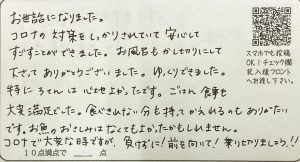 お世話になりました。
コロナの対策をしっかりされていて安心して
すごすことができました。お風呂もかし切りにして
下さってありがとうございました。ゆっくりできました。
特にろてんは心地よかったです。ごはん食事も
大変満足でした。食べきれない分も持ってかえれるのもありがたい
です。お魚のおさしみはなくてもよかったかもしれません。
コロナで大変な時ですが、負けずに!前を向いて!乗り切りましょう!!
10点満点で＿＿点
スマホでも投稿
OK!チェック欄
記入後フロント
へお渡し下さい。